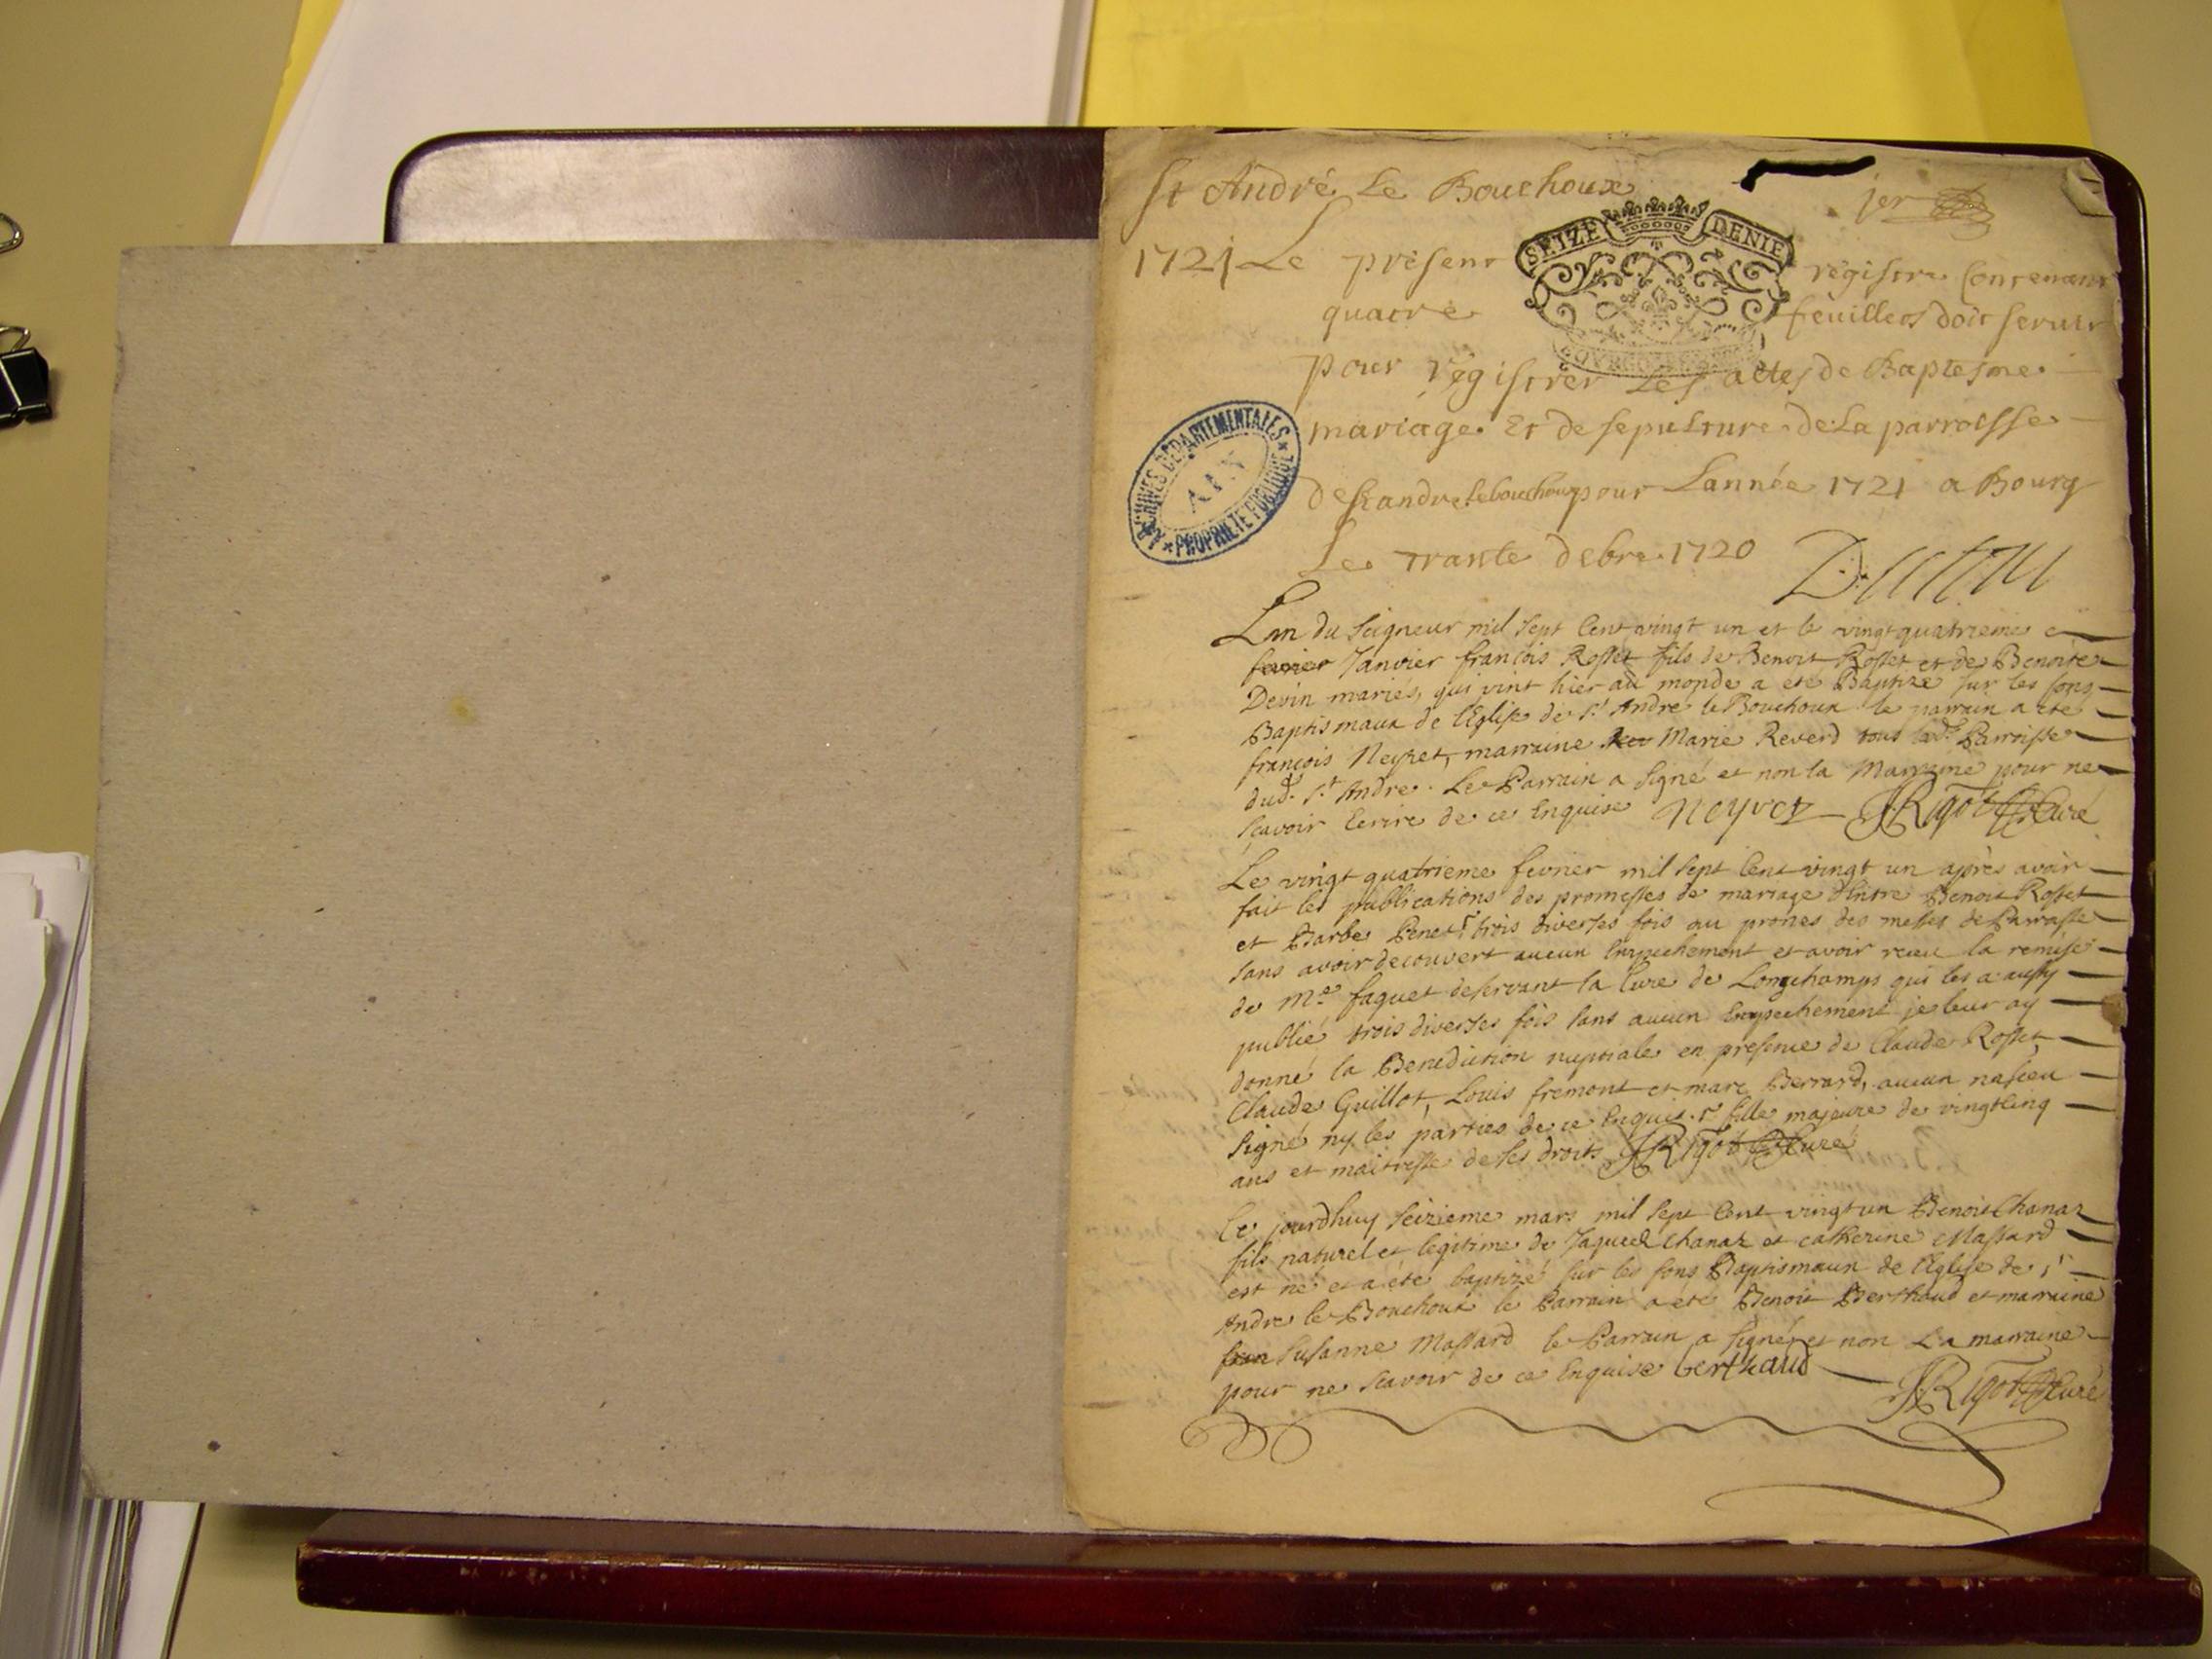 St André Le Bouchoux
jer
1721 Le présent régistre Contenant
SEIZE DENIE
quatre feuillets doit servir
pour régistrer Les actes de Baptesme
mariage Et de sepulture de La parroisse
ARCHIVES DÉPARTEMENTALES
AIN
PROPRIÉTÉ PUBLIQUE
de St andre lebouchoux pour Lannée 1721 a Bourg
Le trante debre 1720
Lan du Seigneur mil sept Cent vingt un et le vingtquatrieme
fevrier Janvier françois Rosset fils de Benoit Rosset et de Benoite
Devin mariés, qui vint hier au monde a eté Baptizé sur les fons
Baptismaux de l'Eglise de St André le Bouchoux le parrain a eté
françois Neyret, marraine Marie Reverd tous Parroisse
dud. St André. Le Parrain a signé et non la Marraine pour ne
scavoir Ecrire de ce Enquise Neyret JRigot Curé
Le vingt quatrieme fevrier mil sept Cent vingt un après avoir
fait les publications des promesses de mariage Entre Benoit Rosset
et Barbe Penet trois diverses fois au prones des messes de Parroisse
sans avoir decouvert aucun Empechement et avoir receu la remise
de Mre faguet deservant la Cure de Longchamps qui les a aussy
publié trois diverses fois sans aucun Empechement je leur ay
donné la Benediction nuptiale en presence de Claude Rosset
Claude Guillot, Louis fremont et marc Berrard, aucun na sceu
signé ny les parties de ce Enquis. fille majeure de vingtcinq
ans et maitresse de ses droits JRigot Curé
Ce jourdhuy seizieme mars mil sept Cent vingt un Benoit Chanaz
fils naturel et legitime de Chanaz et catherine Massard
est né et a eté baptizé sur les fons Baptismaux de l'Eglise de St
André le Bouchoux le Parrain a eté Benoit Berthaud et marraine
Susanne Massard le Parrain a signé et non La marraine
pour ne scavoir de ce Enquise berthaud JRigot Curé